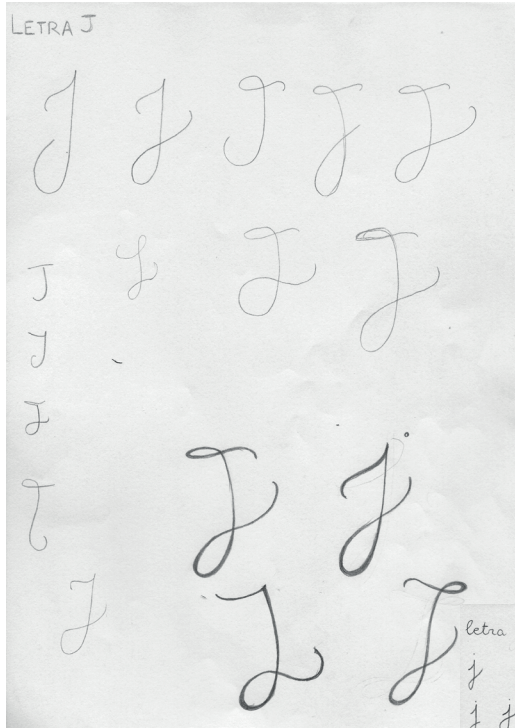 LETRA J
J J J J J
J J J J
J
J
J
J J
J
J J
letra
j
j j